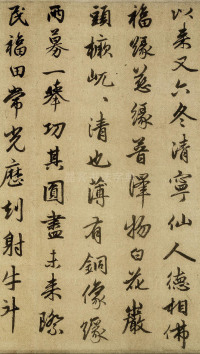 以来又六冬清寧仙人德相佛
福緣慈緣普澤物白花巖
頭橛屹屹清也薄有銅像緣
兩募一舉功其圓盡未来際
民福田常光歷刼射牛斗